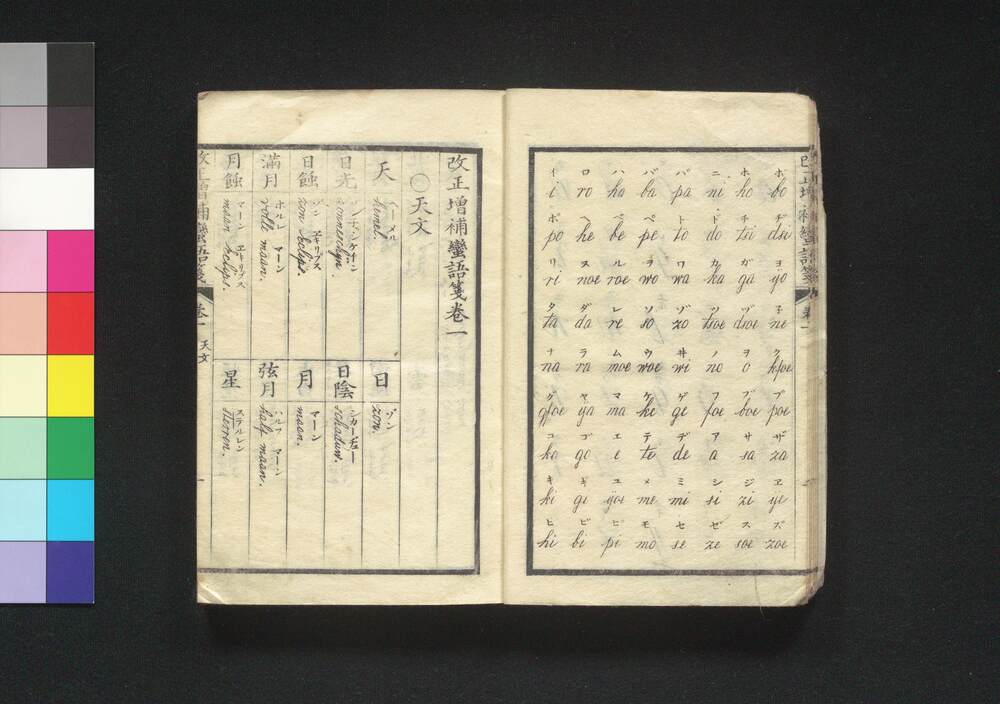 イ ロ ハ バ パ ニ ホ ボ
i ro ha ba pa ni ho bo
ポ ヘ ベ ペ ト ド チ ヂ
po he be pe to do tsi dsi
リ ヌ ル ヲ ワ カ ガ ヨ
ri noe roe wo wa ka ga yo
タ ダ レ ソ ゾ ツ ヅ 子
ta da re so zo tsoe dsoe ne
ナ ラ ム ウ ヰ ノ ヲ ク
na ra moe woe wi no o kfoe
グ ヤ マ ケ ゲ フ ブ プ
gfoe ya ma ke ge foe boe poe
コ ゴ エ テ デ ア サ ザ
ko go e te de a sa za
キ ギ ユ メ ミ シ ジ ヱ
ki gi yoe me mi si zi ye
ヒ ビ ピ モ セ ゼ ス ズ
hi bi pi mo se ze soe zoe
改正増補蠻語箋卷一
〇天文
天 ヘーメル
hemel.
日 ゾン
zon.
日光 ゾンネシケイン
zonneschyn.
日陰 シカーデュー
schaduw.
日蝕 ゾン エキリプス
zon eclips.
月 マーン
maan.
滿月 ホルレ マーン
volle maan.
弦月 ハルフ マーン
half maan.
月蝕 マーン エキリプス
maan eclips.
星 ステルレン
sterren.
改正増補蠻語箋 卷一 天文 一